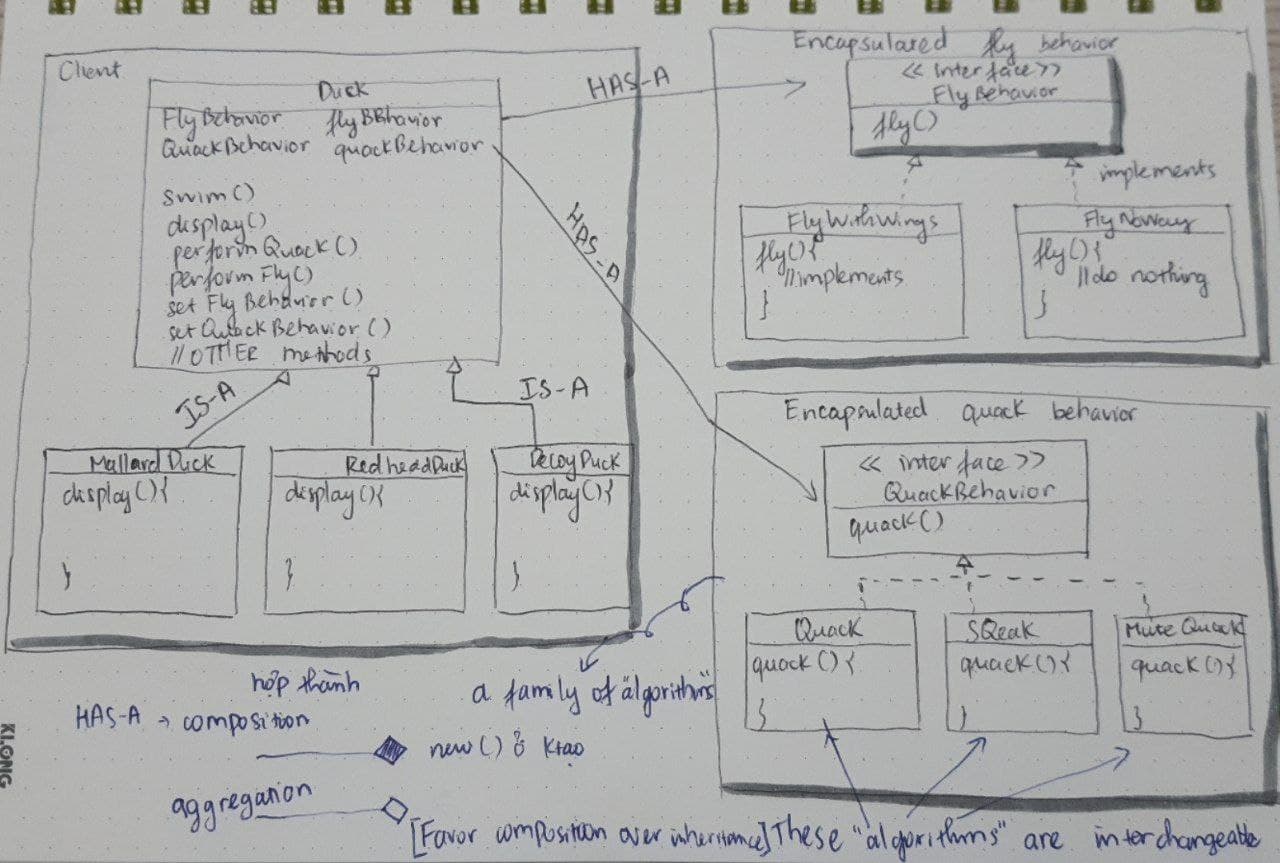 Client
Duck
FlyBehavior flyBBhavior
QuackBehavior quackBehavior
swim()
display()
perform Quack()
perform Fly()
set FlyBehavior()
set QuackBehavior()
//OTHER methods
IS-A
IS-A
MallardDuck
display(){
}
RedheadDuck
display(){
}
DecoyDuck
display(){
}
HAS-A
HAS-A
Encapsulated fly behavior
<< interface >>
FlyBehavior
fly()
implements
FlyWithWings
fly(){
//implements
}
FlyNoWay
fly(){
//do nothing
}
Encapsulated quack behavior
<< interface >>
QuackBehavior
quack()
Quack
quack(){
}
SQeak
quack(){
}
Mute Quack
quack(){
}
a family of "algorithms"
hợp thành
HAS-A → composition
new() ở Ktạo
aggregation
[Favor composition over inheritance] These "algorithms" are interchangeable
KLONG